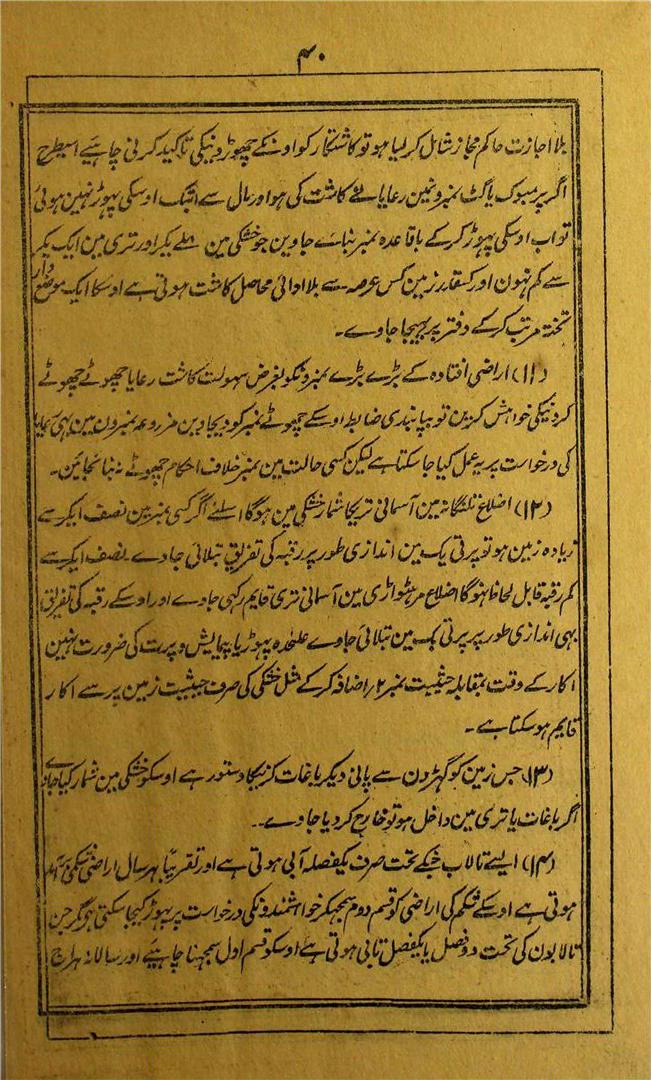 ۴۰
بلا اجازت حاکم مجاز شامل کر لیا ہو تو کاشتکار کو اونکے چھوڑ دینیکی تاکید کرنی چاہیے اسیطرح
اگر پرمبوک یا گٹ نمبرونمین رعایا نے کاشت کی ہو اور مال سے ابتک اوسکی پہوڑ نہین ہوئی
تو اب اوسکی پہوڑ کرکے باقاعدہ نمبر بنائے جاوین جو خشکی مین یکر اور تری مین ایک یکر
سے کم نہون اور کسقدر زمین کس عرصہ سے بلا ادائی محاصل کاشت ہوتی ہے اوسکا ایک موضع وار
تختہ مرتب کرکے دفتر پر بہیجا جاوے ۔
(۱۱) اراضی افتادہ کے بڑے بڑے نمبرونکو بغرض سہولت کاشت رعایا چھوٹے چھوٹے
کرونیکی خواہش کرین تو بپابندی ضابطہ اوسکے چھوٹے نمبر کردیجاوین مزروعہ نمبرون مین بہی رعایا
کی درخواست پر یہ عمل کیا جا سکتا ہے لیکن کسی حالت مین نمبر خلاف احکام چھوٹے نہ بنائجائین ۔
(۱۲) اضلاع تلنگانہ مین آسمانی تری کا شمار خشکی مین ہوگا اسلئے اگر کسی نمبر مین نصف ایکر سے
زیادہ زمین ہو تو پرتی بک مین اندازی طور پر رقبہ کی تفریق بتلائی جاوے ۔ نصف ایکر سے
کم رقبہ قابل لحاظ نہوگا اضلاع مرہٹواڑی مین آسمانی تری قایم رکہی جاوے اور اوسکے رقبہ کی تفریق
بہی اندازی طور پر پرتی بک مین بتلائی جاوے علٰحدہ پہوڑ یا پیمایش و پرت کی ضرورت نہین
اکار کے وقت بمقابلہ حیثیت نمبر ۲؍ اضافہ کرکے مثل خشکی کی صرف حیثیت زمین پر سے اکار
قایم ہو سکتا ہے ۔
(۱۳) جس زمین کو گہڑون سے پانی دیکر باغات کرنیکا دستور ہے اوسکو خشکی مین شمار کیا جاوے
اگر باغات یا تری مین داخل ہو تو خارج کر دیا جاوے ۔
(۱۴) ایسے تالاب جنکے تحت صرف یکفصلہ آبی ہوتی ہے اور تقریباً ہر سال اراضی شکمی برآمد
ہوتی ہے اوسکے شکم کی اراضی کو قسم دوم سمجہکر خواہشمندونکی درخواست پر پہوڑ کیجا سکتی ہی مگر جن
تالابون کی تحت دو فصل یا یکفصل تابی ہوتی ہے اوسکو قسم اول سمجہنا چاہیے اور سالانہ ہراج